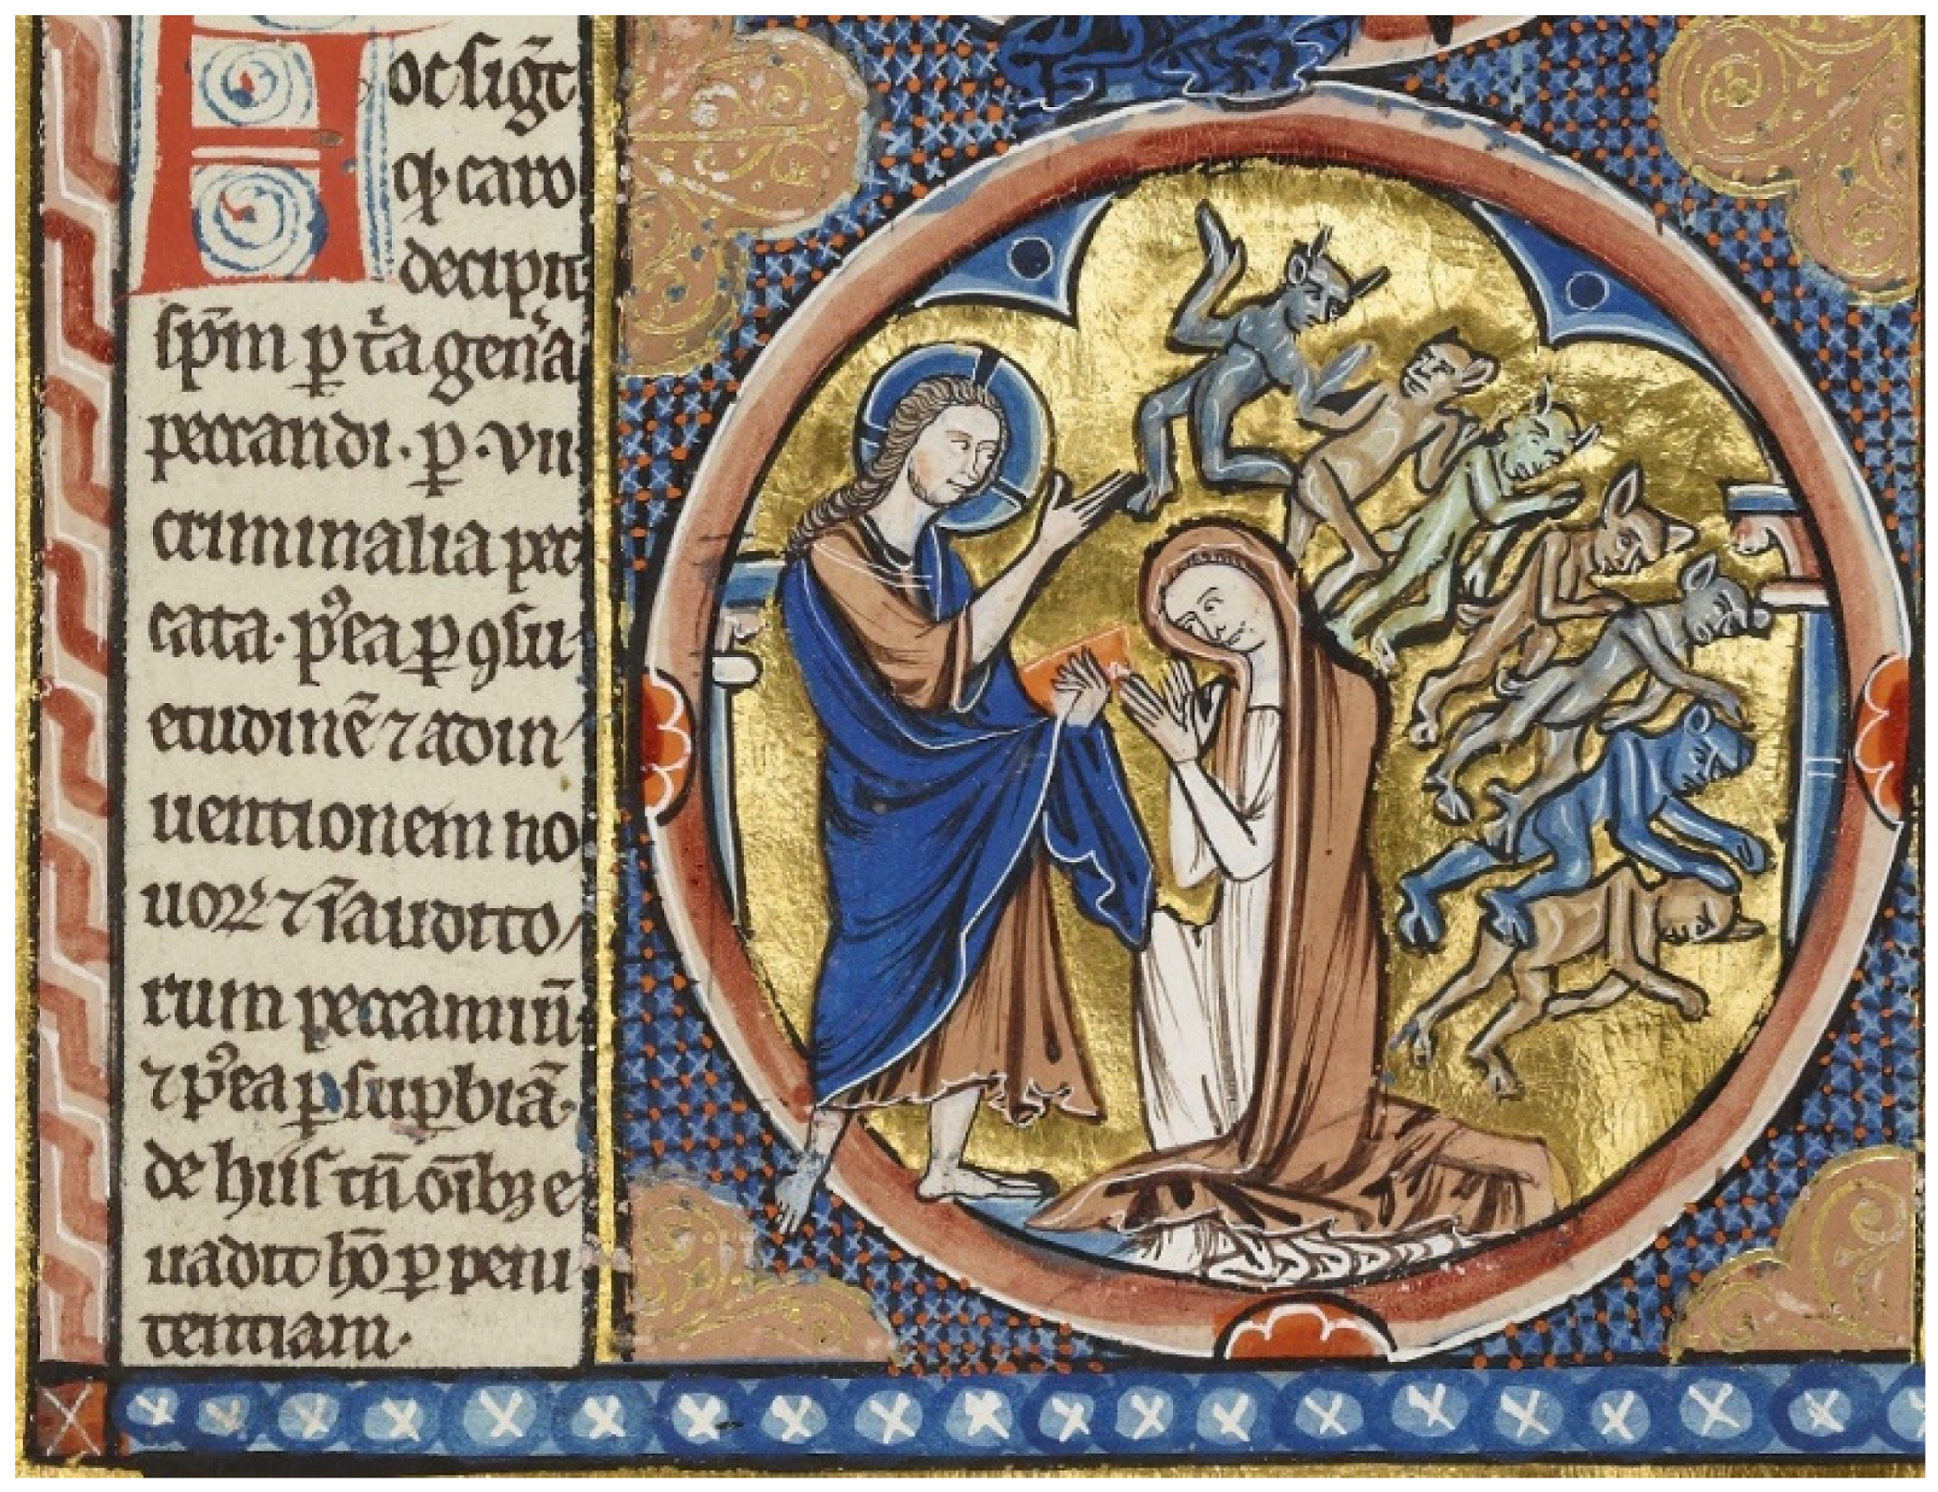 Hoc sigͣt
qͩ caro
decipit
sp̄m p̱ t̾a gen̾a
peccandi· p̱ ·vii·
criminalia pec
cata· p᷒ea p̱ ꝯsu-
etudinē ⁊ adin/
uentionem no
uoꝝ ⁊ īaudito/
rum peccaminū
⁊ p᷒ea p̱ sup̱biā·
de hiis tn̄ oīb; e
uadit hō p̱ peni
tentiam·